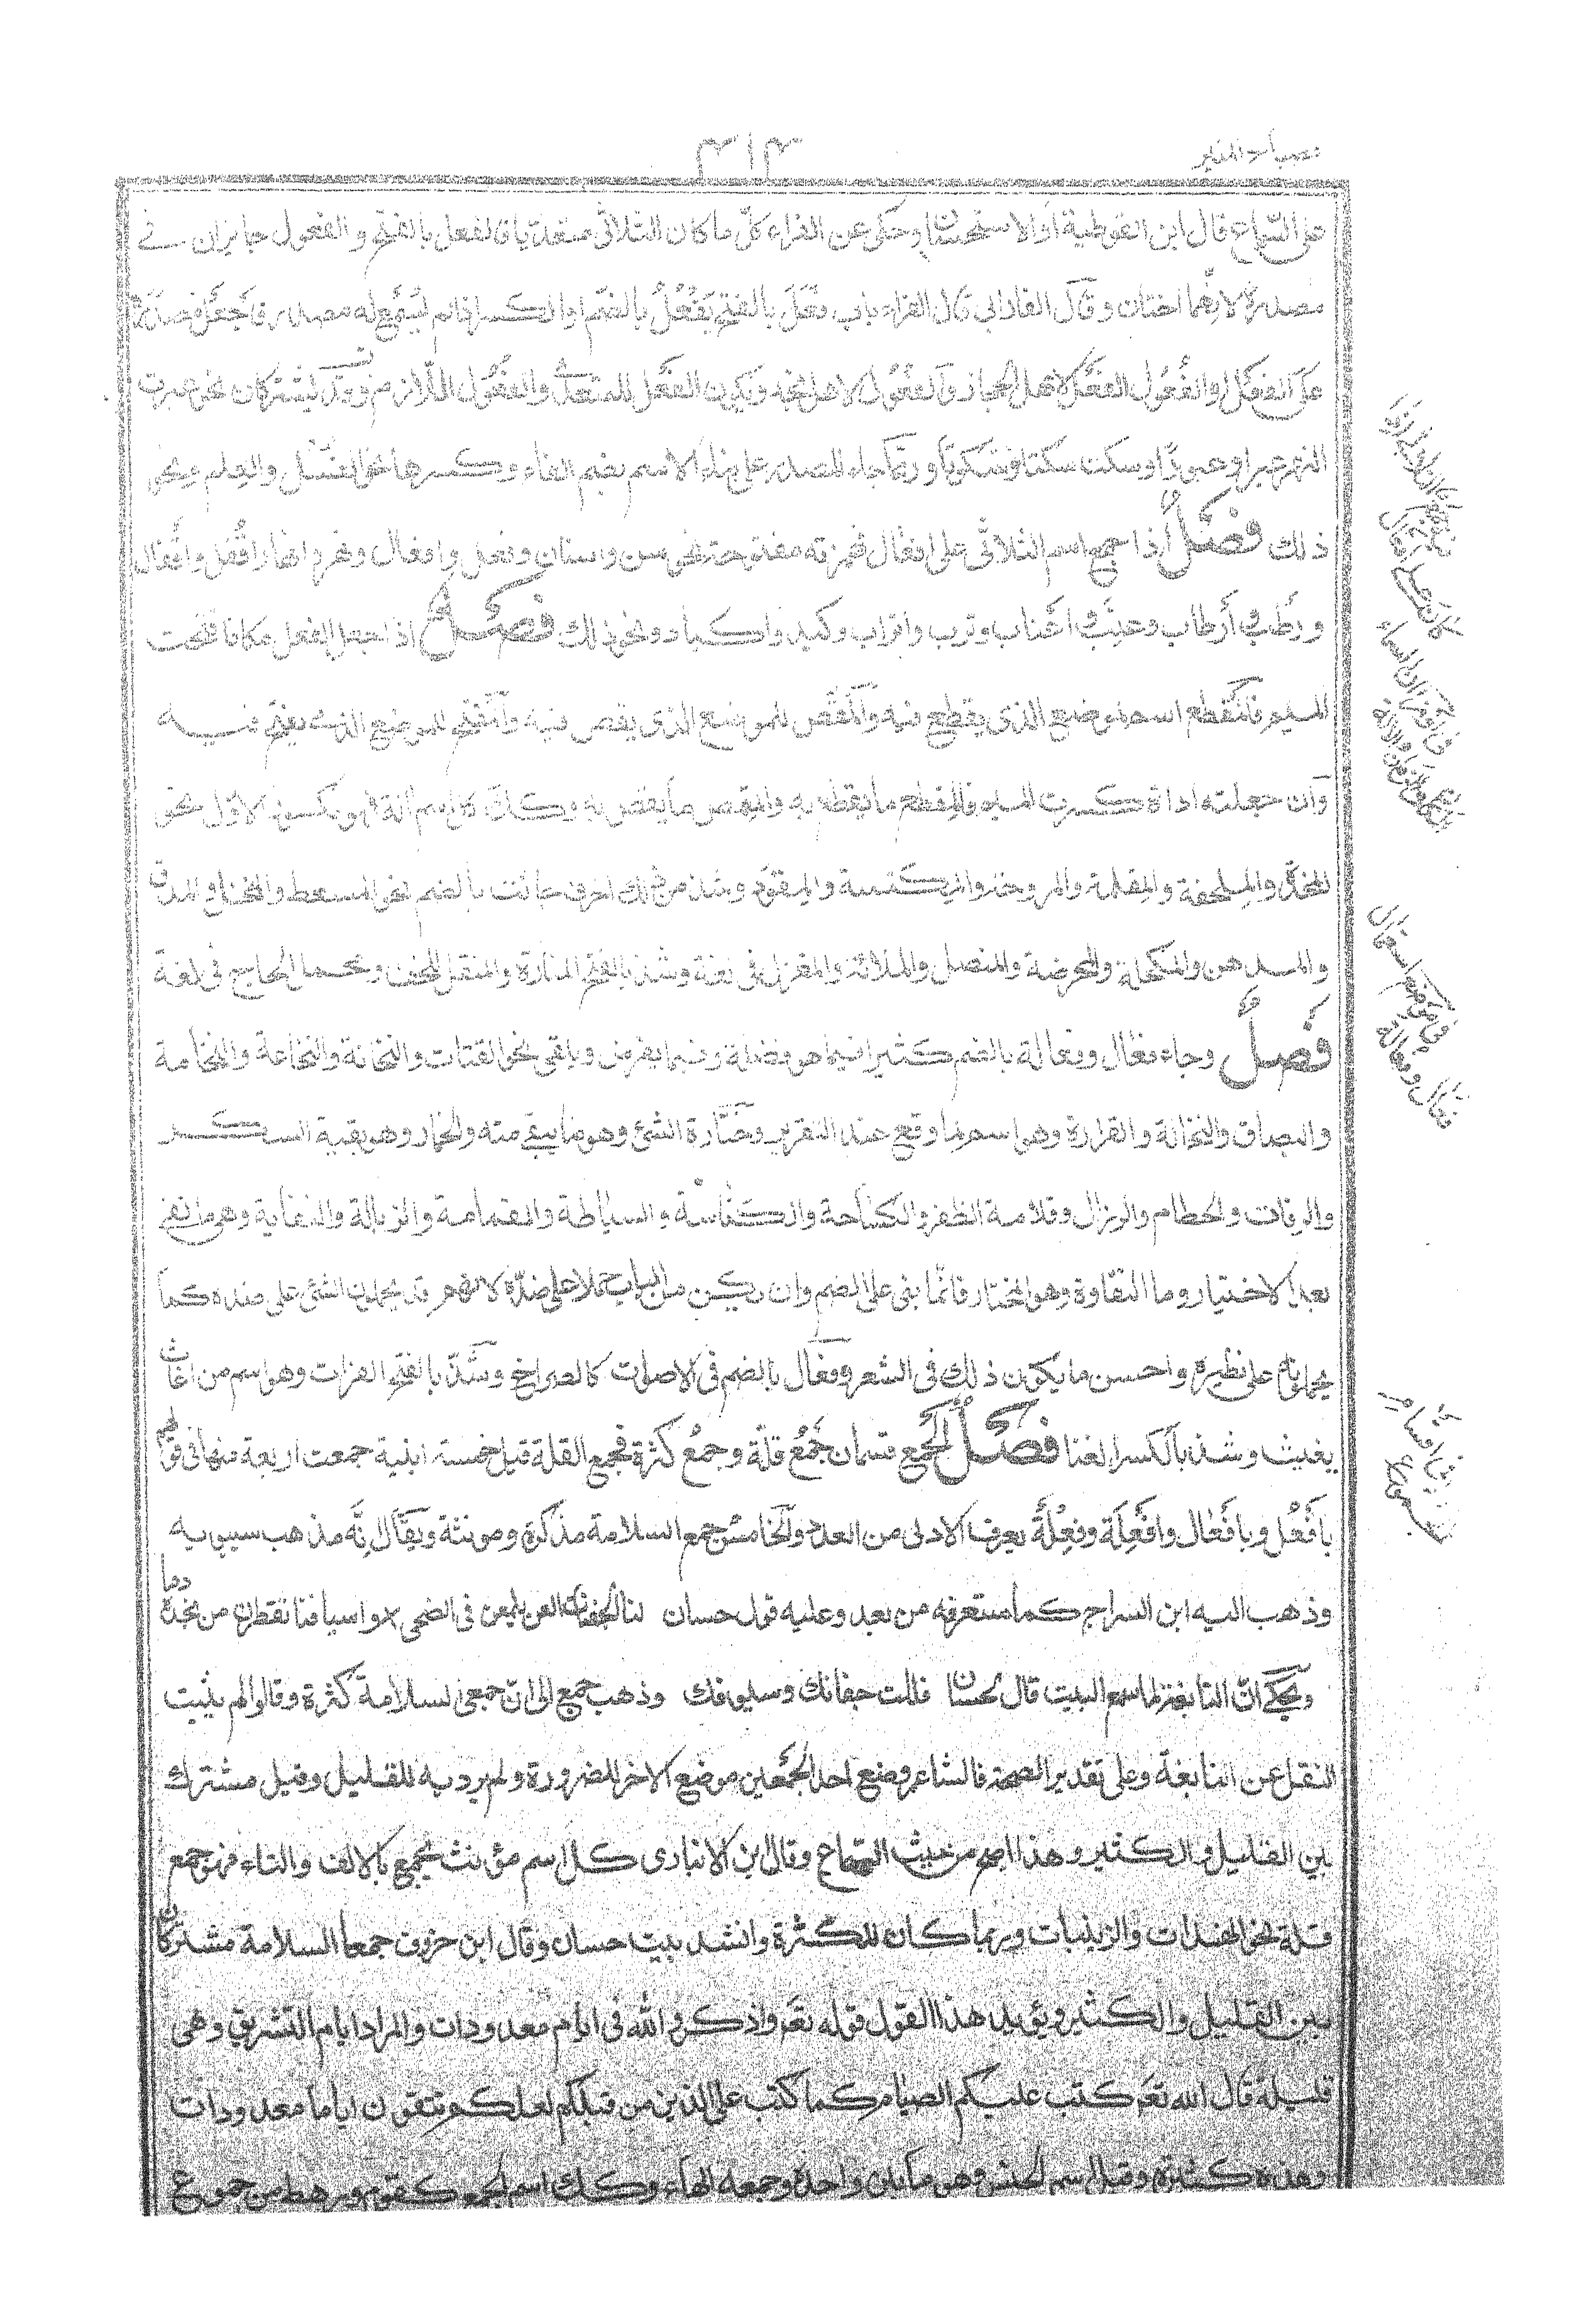 مصباح المنير
على السماع قال ابن القوطية او الاستحسان وحكى عن الفراء كل ما كان الثلاثى متعديا فالفعل بالفتح والفعول جايزان فى
مصدره لانهما اختان وقال الفارابى قال الفراء باب فعل بالفتح يفعل بالضم او الكسر اذا لم يسمع له مصدر فاجعل مصدره
على الفعل والفعول الفعل لاهل الحجاز والفعول لاهل نجد ويكون الفعل للمتعدى والفعول اللازم وقد يشتركان نحو عبرت
النهر عبرا وعبورا وسكت سكتا وسكوتا وربما جاء المصدر على بناء الاسم بضم الفاء وكسرها نحو الغسل والعلم ونحو
ذلك فصل اذا جمع اسم الثلاثى على افعال فهمزته مفتوحة نحو سن واسنان وقفل واقفال
ورطب وارطاب وعنب واعناب وترب واتراب وكبد واكباد ونحو ذلك فصل اذا جعل المفعل مكانا فتحت
الميم فالمقطع اسم للموضع الذى يقطع فيه والمقص للموضع الذى يقص فيه والمفتح للموضع الذى يفتح فيه
وان جعلته اداة كسرت الميم فالمقطع ما يقطع به والمقص ما يقص به وكل اسم آلة فهو مكسور الاول نحو
المخدة والملحفة والمقلمة والمروحة والمكنسة والمقود وشذ من ذلك احرف جائت بالضم نحو المسعط والمنخل والمدق
والمدهن والمكحلة والمحرضة والمنصل والملاءة والمغزل فى لغة وشذ بالفتح المنارة والمنقل للخف ومحمل الحاج فى لغة
فصل وجاء فعال وفعالة بالضم كثيرا فيما هو فضلة وفيما يرفض ويلقى نحو الفتات والنخالة والنخاعة والنخامة
والبصاق والنخالة والقرارة وهو اسم لما وقع عند التقرير وخثارة الشئ وهو ما يبقى منه والخمار وهو بقية السكر
والرفات والحطام والرذال وقلامة الظفر والكساحة والكناسة والسباطة والقمامة والزبالة والنفاية وهو ما نفى
بعد الاختيار واما النقاوة وهو المختار فانما بنى على الضم وان لم يكن من الباب حملا على ضده لانهم قد يحملون الشئ على ضده كما
يحملونه على نظيره واحسن ما يكون ذلك فى الشعر وفعال بالضم فى الاصوات كالصراخ وشذ بالفتح الغواث وهو اسم من اغاث
يغيث وشذ بالكسر الغنا فصل الجمع قسمان جمع قلة وجمع كثرة فجمع القلة قيل خمسة ابنية جمعت اربعة منها فى قولهم
بافعل وبافعال وافعلة وفعلة يعرف الادنى من العدد والخامس جمع السلامة مذكره ومونثه ويقال انه مذهب سيبويه
وذهب اليه ابن السراج كما ستعرفه من بعد وعليه قول حسان لنا الجفنات الغر يلمعن فى الضحى واسيافنا يقطرن من نجدة دما
ويحكى ان النابغة لما سمع البيت قال لحسان قللت جفانك وسيوفك وذهب جمع الى ان جمعى السلامة كثرة وقالوا لم يثبت
النقل عن النابغة وعلى تقدير الصحة فالشاعر وضع احد الجمعين موضع الاخر للضرورة ولم يرد به للقليل وقيل مشترك
بين القليل والكثير وهذا اصح من حيث السماع وقال ابن الانبارى كل اسم مؤنث يجمع بالالف والتاء فهو جمع
قلة نحو الهندات والزينبات وربما كان للكثرة وانشد بيت حسان وقال ابن خروف جمعا السلامة مشتركان
بين القليل والكثير ويؤيد هذا القول قوله تعم واذكروا الله فى ايام معدودات والمراد ايام التشريق وهى
قليلة قال الله تعم كتب عليكم الصيام كما كتب على الذين من قبلكم لعلكم تتقون اياما معدودات
وهذه كثيرة وقيل اسم الجنس وهو ما بين واحده وجمعه الهاء وكذلك اسم الجمع كقوم ورهط من جموع